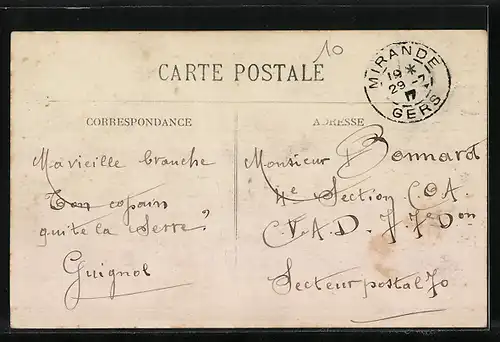 10
CARTE POSTALE
MIRANDE
19 *
29 - 7
17
GERS
CORRESPONDANCE
ADRESSE
Ma vieille branche
Ton copain
qui te la serre
Guignol
Monsieur Bonnard
4e Section C.O.A.
C.V.A.D.
Secteur postal 70